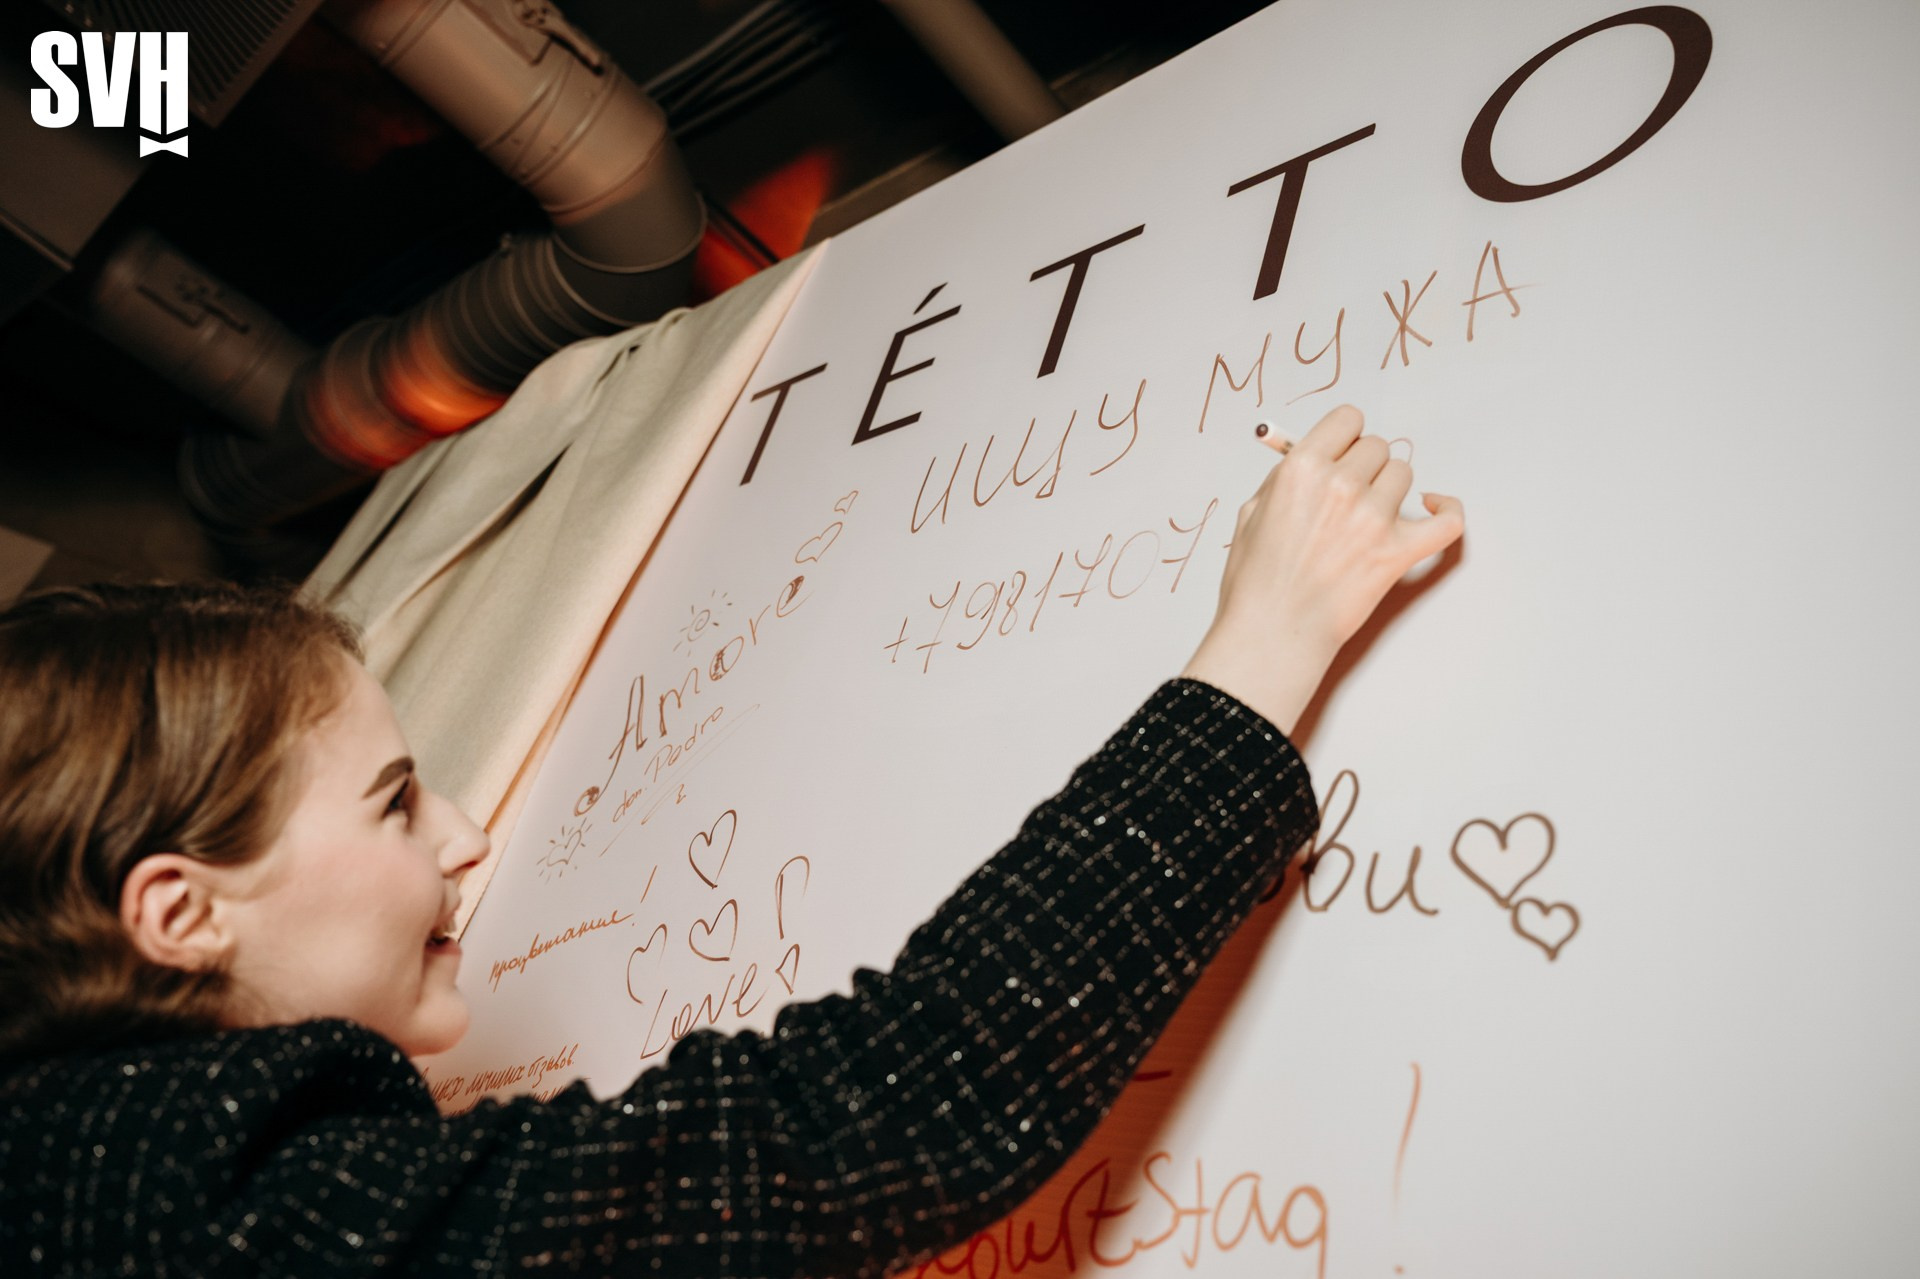 SVH
TÉTTO
ИЩУ МУЖА
+7981707
Amore
don. Pedro
процветания!
Love
ви
лучших отзывов
!